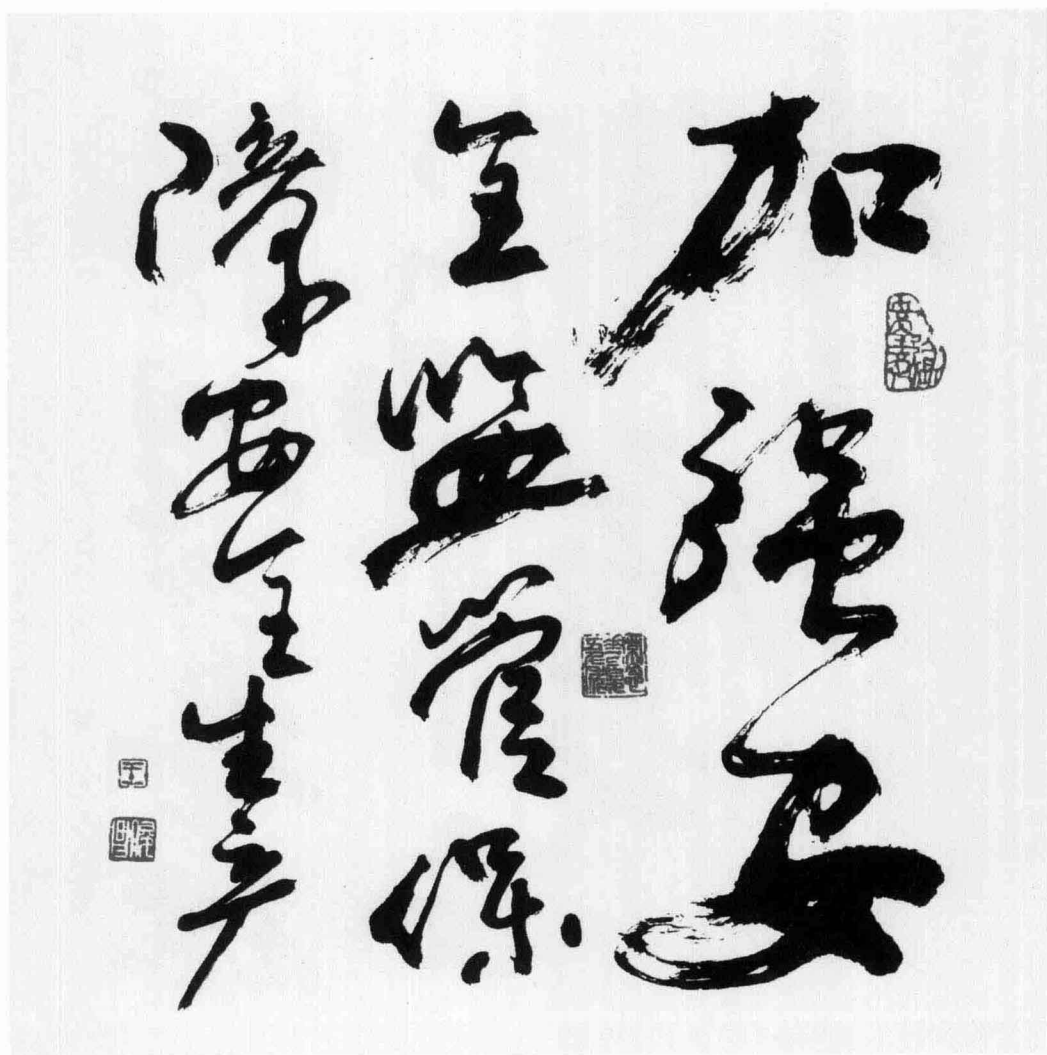 加强安
全监管保
障安全生产